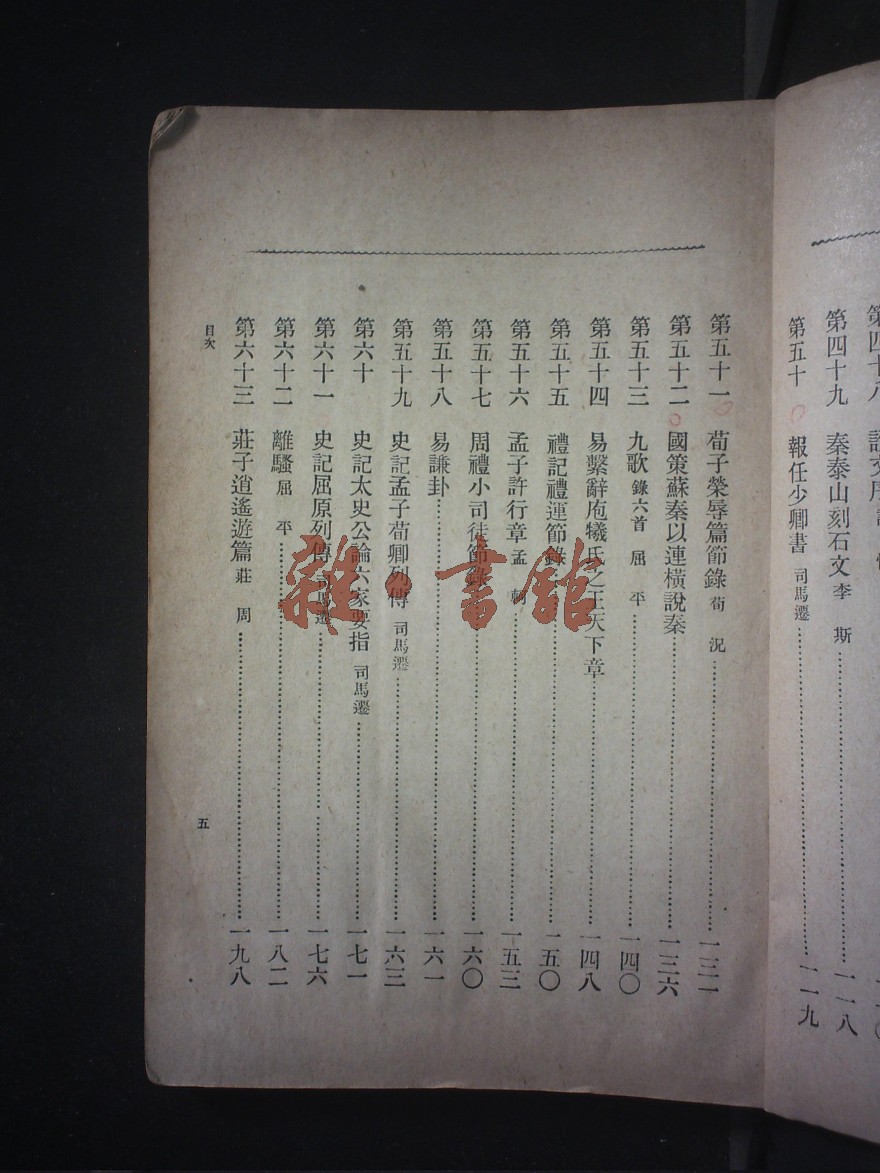 第四十九　秦泰山刻石文 李斯……一一八
第五十　報任少卿書 司馬遷……一一九
第五十一　荀子榮辱篇節錄 荀況……一三一
第五十二　國策蘇秦以連橫說秦……一三六
第五十三　九歌 錄六首 屈平……一四〇
第五十四　易繫辭庖犧氏之王天下章……一四八
第五十五　禮記禮運節錄……一五〇
第五十六　孟子許行章 孟軻……一五三
第五十七　周禮小司徒節錄……一六〇
第五十八　易謙卦……一六一
第五十九　史記孟子荀卿列傳 司馬遷……一六三
第六十　史記太史公論六家要指 司馬遷……一七一
第六十一　史記屈原列傳 司馬遷……一七六
第六十二　離騷 屈平……一八二
第六十三　莊子逍遙遊篇 莊周……一九八
目次
五
雜·書館